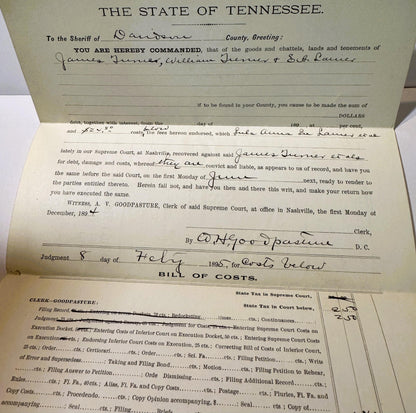 THE STATE OF TENNESSEE.
To the Sheriff of Davidson County, Greeting:
YOU ARE HEREBY COMMANDED, that of the goods and chattels, lands and tenements of
James Turner, William Turner &
to be found in your County, you cause to be made the sum of
DOLLARS
debt, together with interest, from the day of 189 at per cent,
and costs, below the fees hereon endorsed, which
lately in our Supreme Court, at Nashville, recovered against said James Turner et als
for debt, damages and costs, whereof they are convict and liable, as appears to us of record, and have you
the same before the said Court, on the first Monday of June next, ready to render to
the parties entitled thereto. Herein fail not, and have you then and there this writ, and make your return how
you have executed the same.
WITNESS, A. V. GOODPASTURE, Clerk of said Supreme Court, at office in Nashville, the first Monday of
December, 1894
Clerk,
By W. H. Goodpasture D. C.
Judgment 8 day of Feby 1895, for Costs below
BILL OF COSTS.
State Tax in Supreme Court,
CLERK—GOODPASTURE: State Tax in Court below, 2 50
Filing Record, Continuances, 2 50
Judgment for Costs Entering Supreme Court Costs on
Execution Docket, Entering Costs of Inferior Court on Execution Docket, 50 cts.; Entering Supreme Court Costs
on Execution Endorsing Inferior Court Costs on Execution, 25 cts.; Correcting Bill of Costs of Inferior Court,
cts.; Order, cts.; Certiorari, cts.; Order, cts.; Sci. Fa. cts.; Filing Petition cts.; Writ
of Error and Supersedeas, Taking and Filing Bond, cts.; Motion cts.; Filing Petition to Rehear,
cts.; Filing Answer to Petition cts.; Order Dismissing cts.; Filing Additional Record, cts.;
Rules, cts.; Fl. Fa., and Copy Costs, cts.; Alias, Fi. Fa. and Copy Costs, cts.; Postage cts.; Pluries,
cts.; Procedendo, cts.; Copy Opinion accompanying, $ cts.; Copy Decree
accompanying $ cts.; Seal cts.; Filing